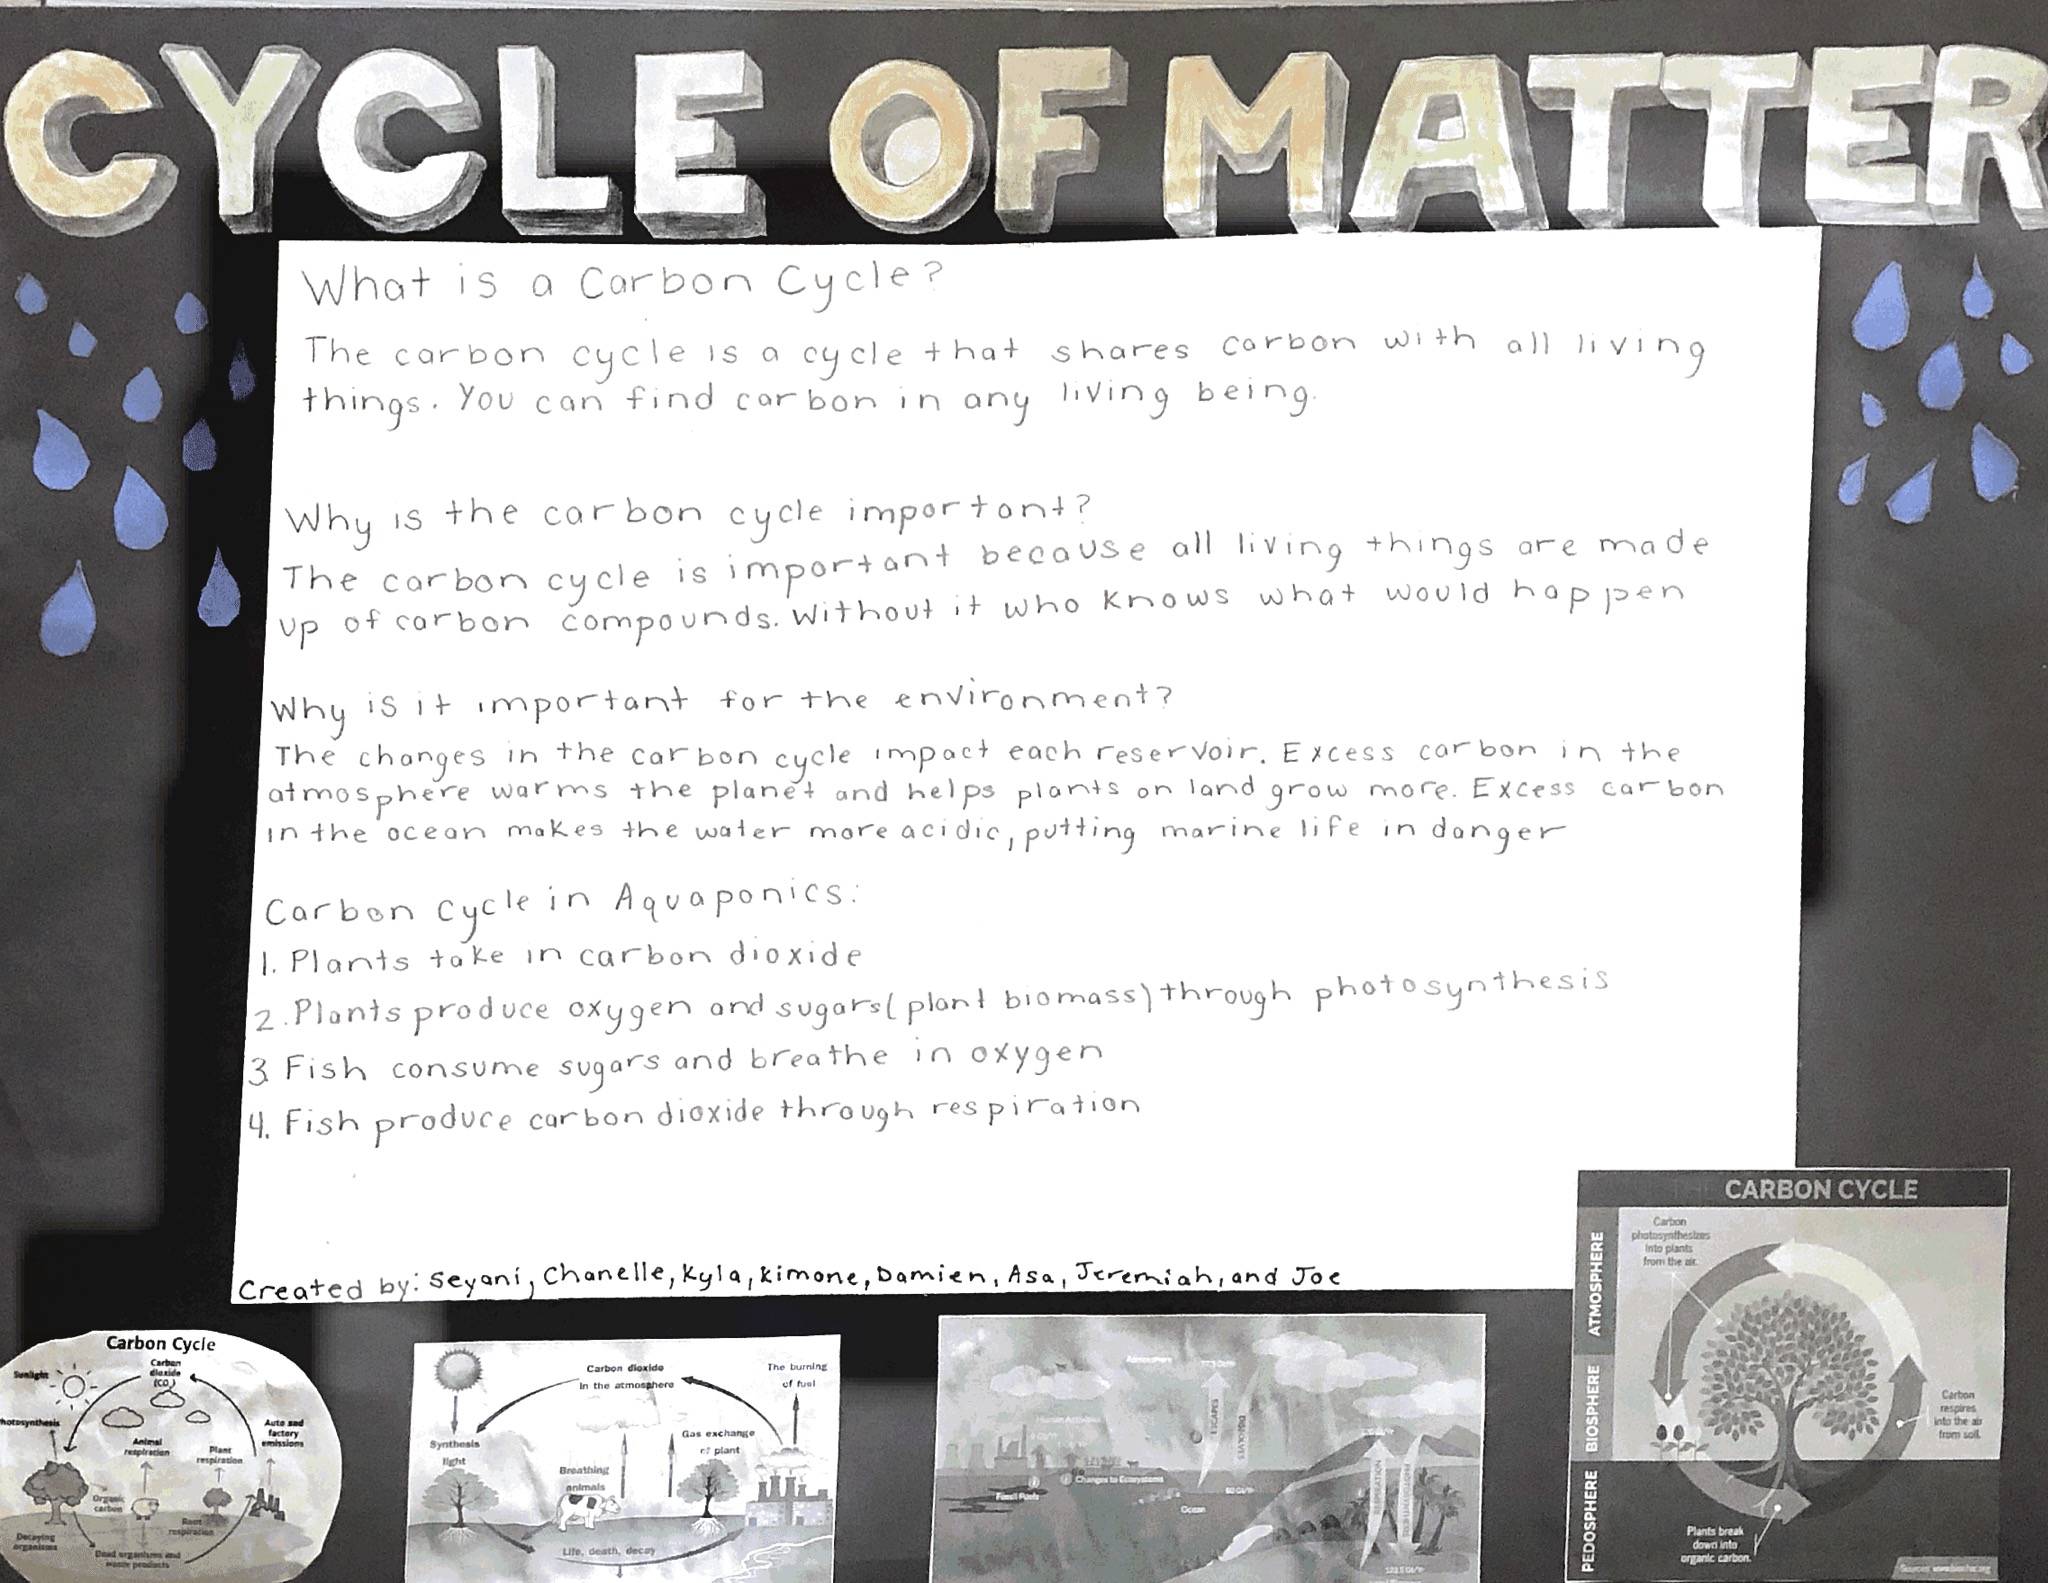 CYCLE OF MATTER
What is a Carbon Cycle?
The carbon cycle is a cycle that shares carbon with all living
things. You can find carbon in any living being.
Why is the carbon cycle important?
The carbon cycle is important because all living things are made
up of carbon compounds. Without it who knows what would happen
Why is it important for the environment?
The changes in the carbon cycle impact each reservoir. Excess carbon in the
atmosphere warms the planet and helps plants on land grow more. Excess carbon
in the ocean makes the water more acidic, putting marine life in danger
Carbon cycle in Aquaponics:
1. Plants take in carbon dioxide
2. Plants produce oxygen and sugars (plant biomass) through photosynthesis
3. Fish consume sugars and breathe in oxygen
4. Fish produce carbon dioxide through respiration
Created by: Seyani, Chanelle, Kyla, Kimone, Damien, Asa, Jeremiah, and Joe
Carbon Cycle
Sunlight
Carbon
dioxide
(CO₂)
hotosynthesis
Animal
respiration
Plant
respiration
Auto and
factory
emissions
Organic
carbon
Root
respiration
Decaying
organisms
Dead organisms and
waste products
Carbon dioxide
in the atmosphere
The burning
of fuel
Synthesis
light
Gas exchange
of plant
Breathing
animals
Life, death, decay
Atmosphere
Human Activities
ESCAPES
DISSOLVES
Changes to Ecosystems
Fossil Fuels
Ocean
RESPIRATION
PHOTOSYNTHESIS
THE CARBON CYCLE
ATMOSPHERE
BIOSPHERE
PEDOSPHERE
Carbon
photosynthesizes
into plants
from the air.
Carbon
respires
into the air
from soil.
Plants break
down into
organic carbon.